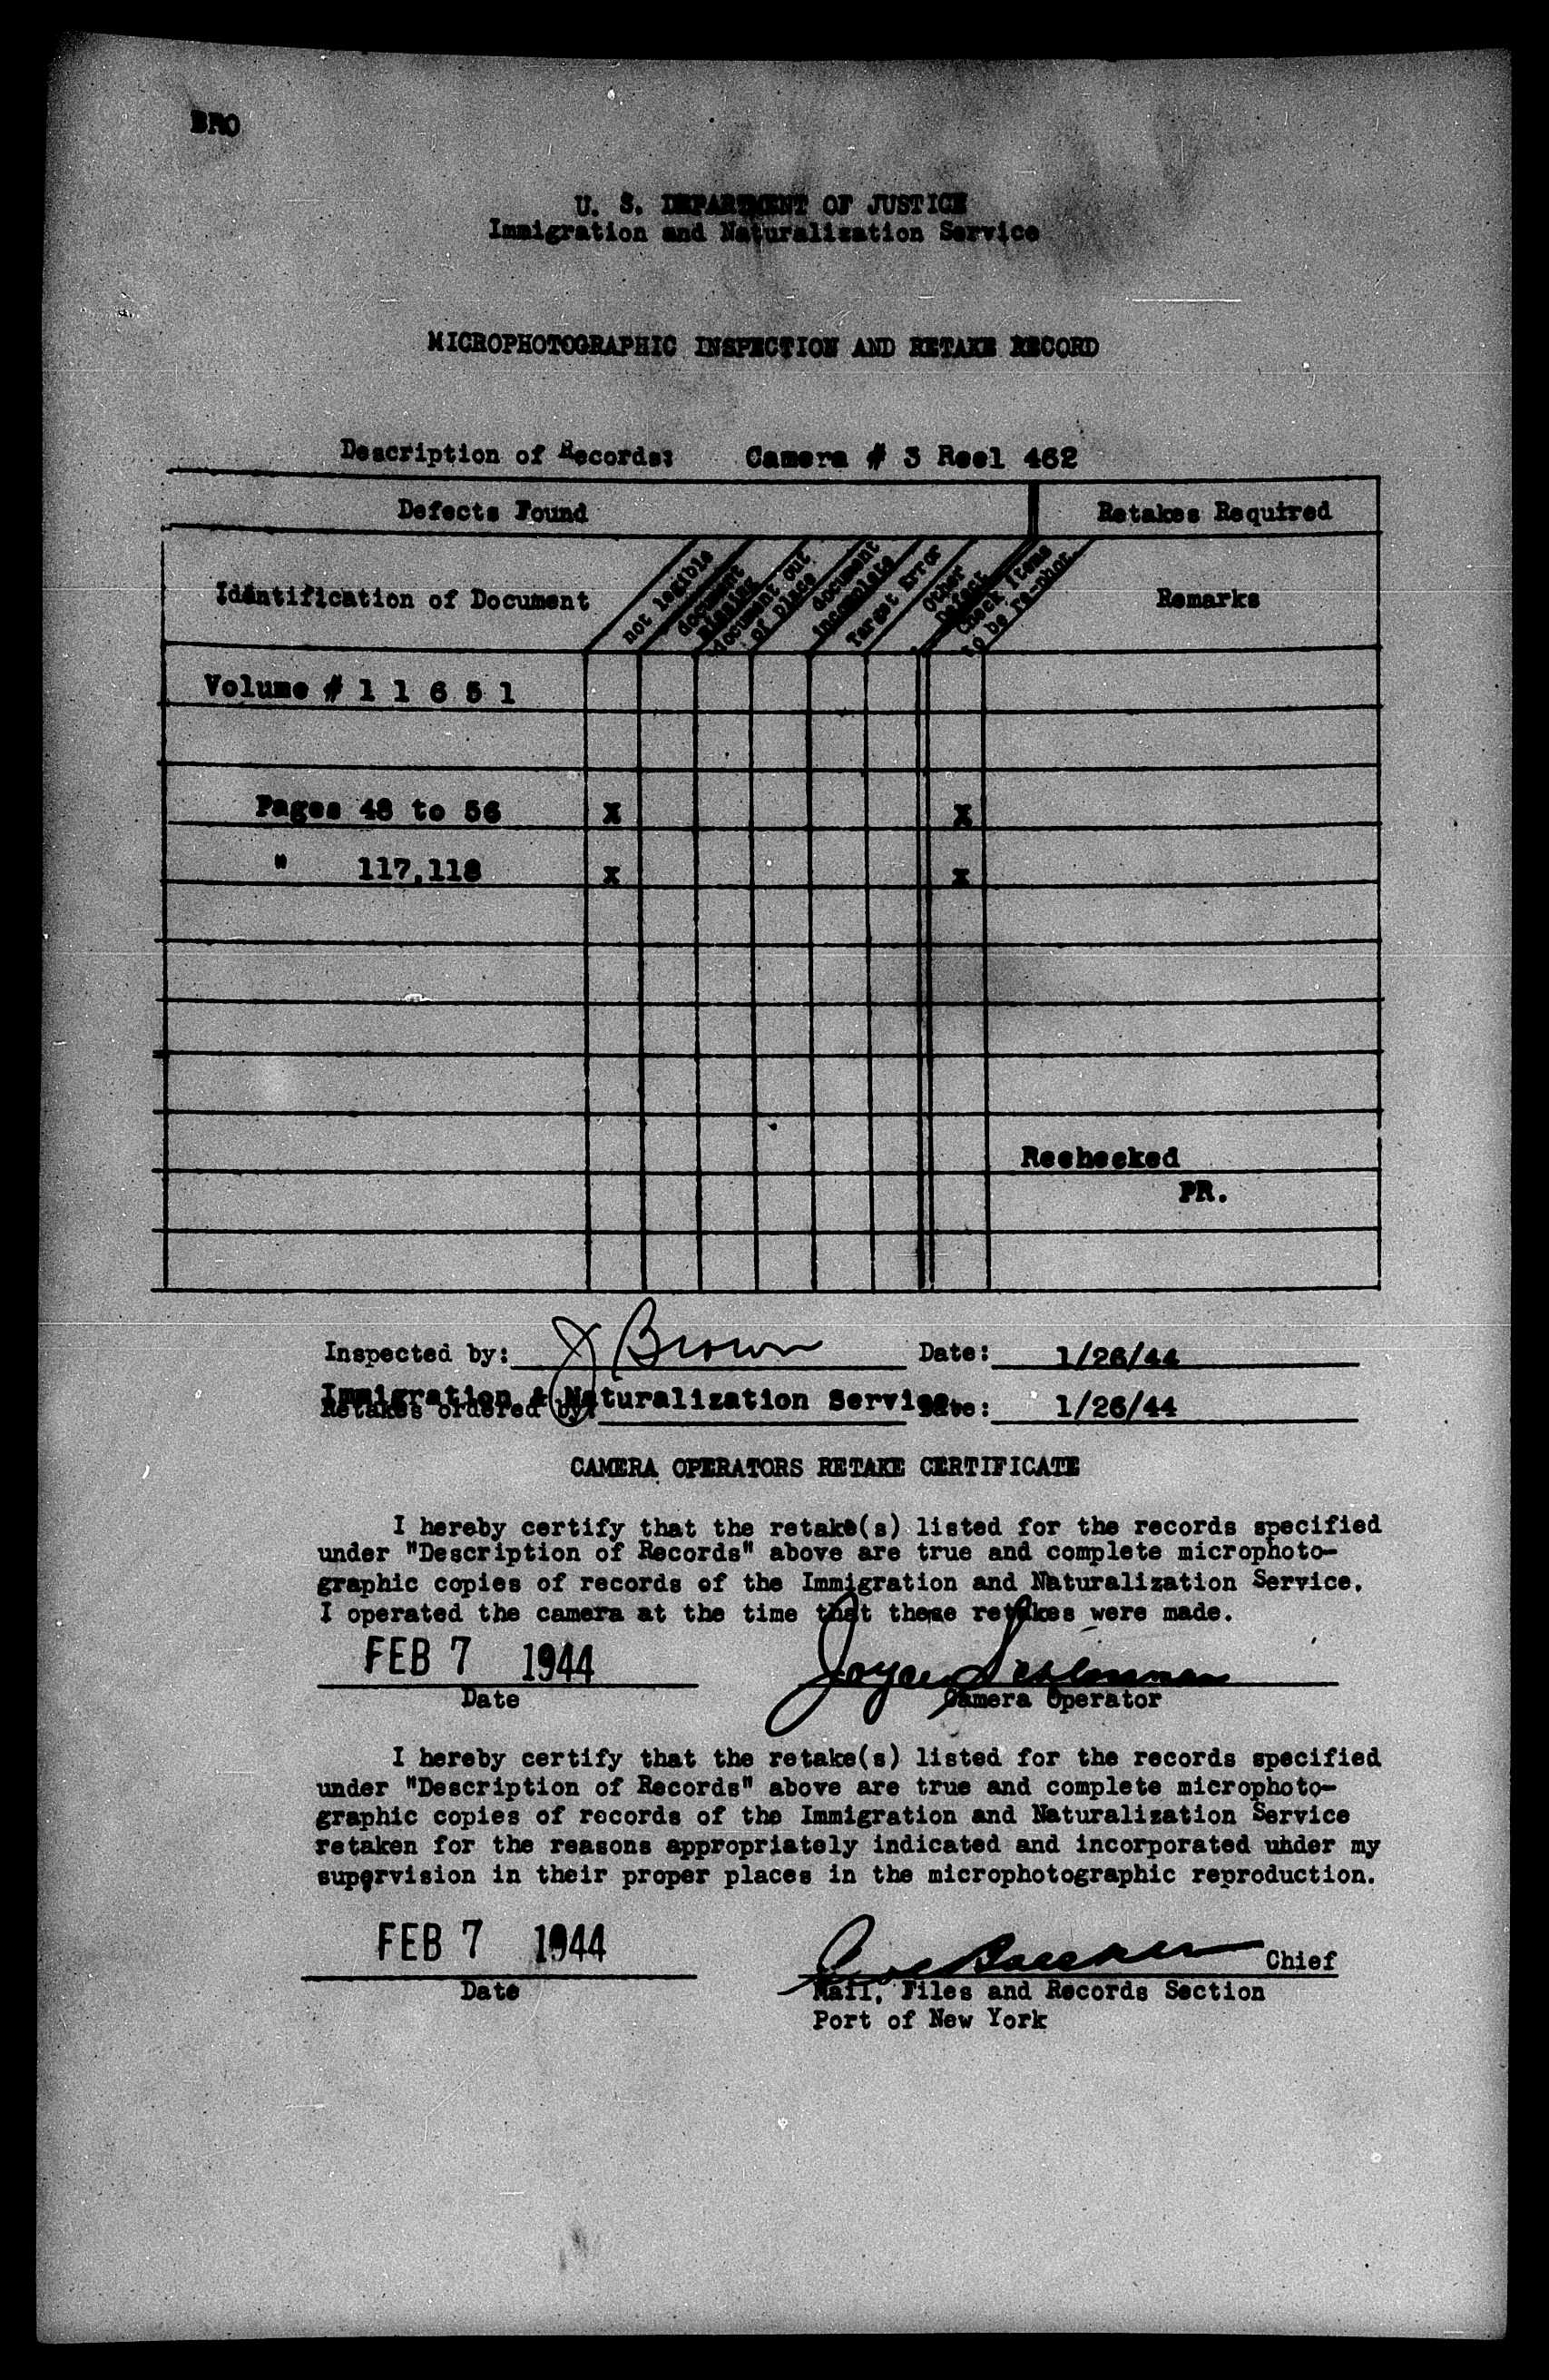 BRO
U. S. DEPARTMENT OF JUSTICE
Immigration and Naturalization Service
MICROPHOTOGRAPHIC INSPECTION AND RETAKE RECORD
Description of Records: Camera # 3 Reel 462
Defects Found Retakes Required
Identification of Document
not legible
document missing
document out of place
document incomplete
Target Error
Other Defect
Check items to be re-phot.
Remarks
Volume # 1 1 6 5 1
Pages 48 to 56 X X
" 117,118 X X
Rechecked
PR.
Inspected by: J Brown Date: 1/26/44
Immigration & Naturalization Service
Retakes ordered by: Date: 1/26/44
CAMERA OPERATORS RETAKE CERTIFICATE
I hereby certify that the retake(s) listed for the records specified
under "Description of Records" above are true and complete microphoto-
graphic copies of records of the Immigration and Naturalization Service.
I operated the camera at the time that these retakes were made.
FEB 7 1944 Joyce
Date Camera Operator
I hereby certify that the retake(s) listed for the records specified
under "Description of Records" above are true and complete microphoto-
graphic copies of records of the Immigration and Naturalization Service
retaken for the reasons appropriately indicated and incorporated under my
supervision in their proper places in the microphotographic reproduction.
FEB 7 1944 Chief
Date Mail, Files and Records Section
Port of New York